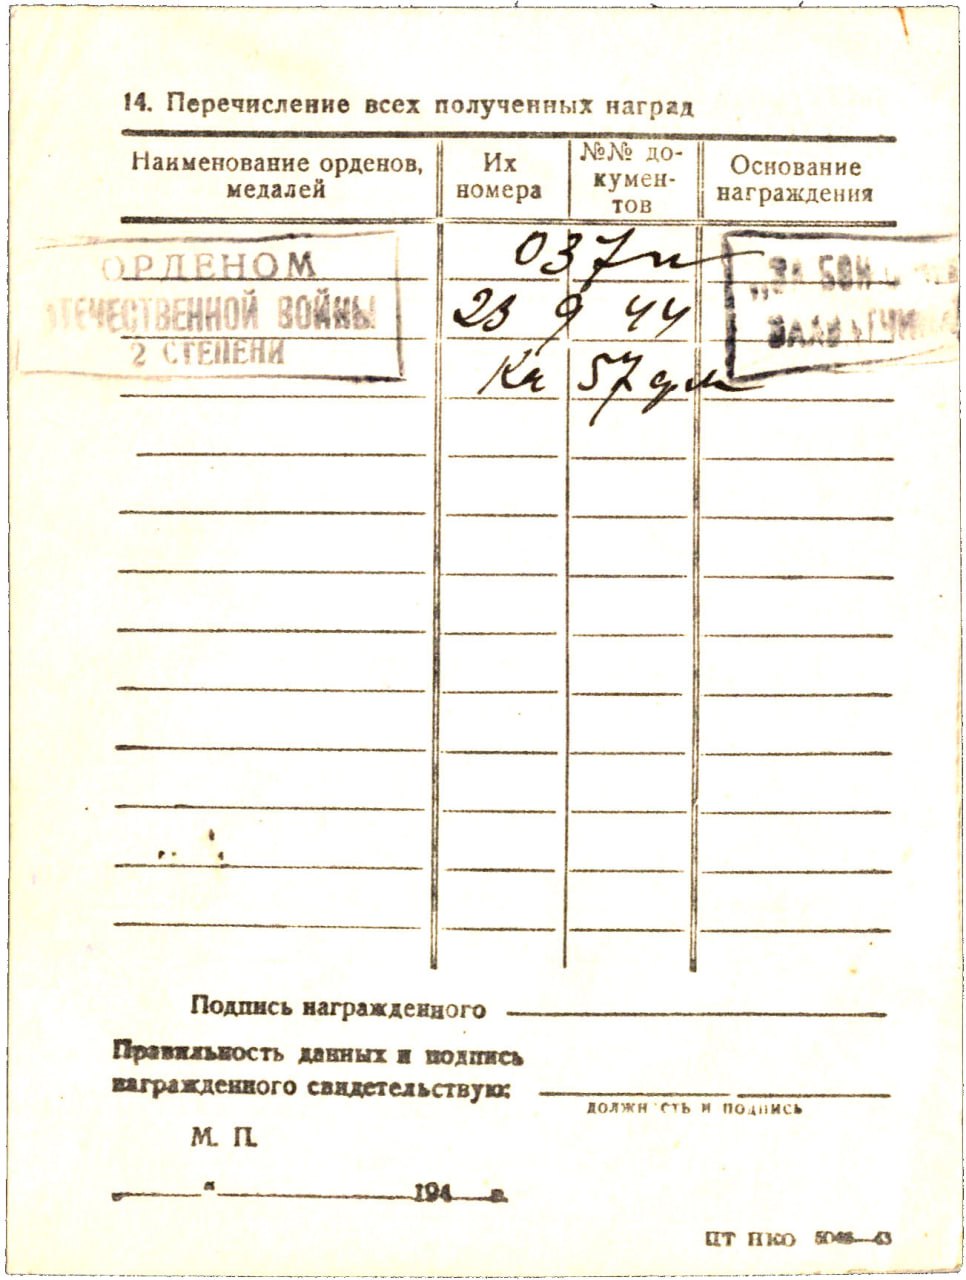 14. Перечисление всех полученных наград
Наименование орденов, медалей
Их номера
№№ документов
Основание награждения
ОРДЕНОМ
ОТЕЧЕСТВЕННОЙ ВОЙНЫ
2 СТЕПЕНИ
037н
23 9 44
57
„ЗА
Подпись награжденного
Правильность данных и подпись
награжденного свидетельствую:
должность и подпись
М. П.
„ “ 194 г.
ЦТ НКО